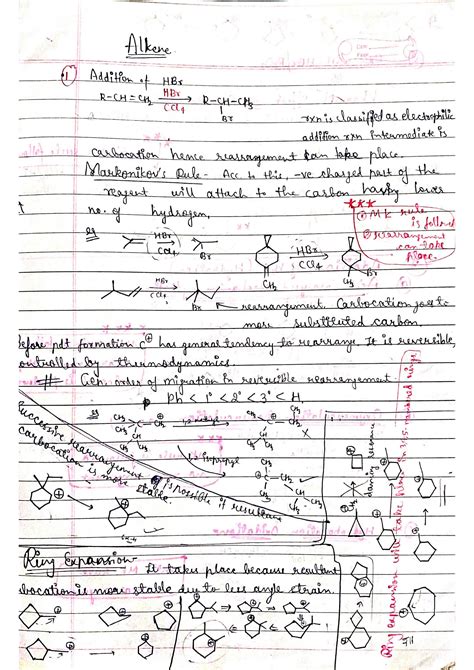 Alkene
① Addition of HBr
R-CH=CH₂ HBr CCl₄ → R-CH-CH₃
Br
rxn is classified as electrophilic
addition rxn intermediate is
carbocation hence rearrangement can take place.
Markonikov's Rule- Acc to this, -ve charged part of the
reagent will attach to the carbon having lower
no. of hydrogen,
***
① MK rule
is followed
② rearrangement
can take
place.
eg HBr CCl₄ Br
CH₃ HBr CCl₄ Br CH₃
HBr CCl₄ Br
rearrangement. Carbocation goes to
more substituted carbon.
Before pdt formation C⊕ has general tendency to rearrange. It is reversible,
controlled by thermodynamics.
# Gen. order of migration in reversible rearrangement
Ph < 1° < 2° < 3° < H,
eg CH₃ CH₃
isopropyl
Successive rearrangement is possible if resultant
carbocation is more stable.
dancing resonance
Ring expansion will take place in 3,4,5-membered rings
Ring Expansion- It takes place because resultant
carbocation is more stable due to less angle strain.